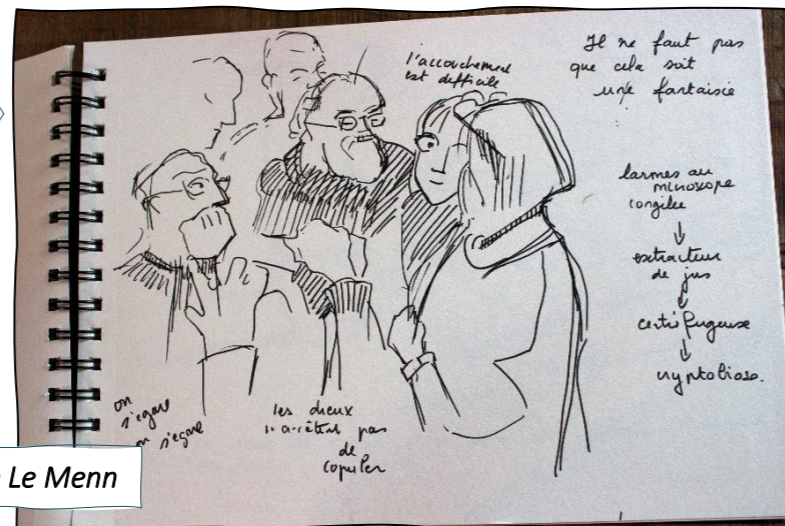 l'accouchement
est difficile
Il ne faut pas
que cela soit
une fantaisie
larmes au
microscope
congelée
↓
extracteur
de jus
↓
centrifugeuse
↓
cryptobiose.
on
s'égare
on s'égare
les dieux
n'arrêtent pas
de
copuler
Le Menn